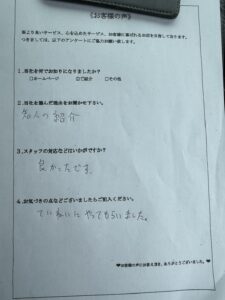 《お客様の声》
より良いサービス、心を込めたサービス、お客様に喜ばれるお店を目指しております。
つきましては、以下のアンケートにご協力お願い致します。
1.当社を何でお知りになりましたか?
□ホームページ □ご紹介 □その他
2.当社を選んだ理由をお聞かせ下さい。
知人の紹介
3.スタッフの対応などはいかがですか?
良かったです。
4.お気づきの点などございましたらご記入ください。
ていねいにやってもらいました。
♥お客様の声にお答え頂き、ありがとうございました。♥